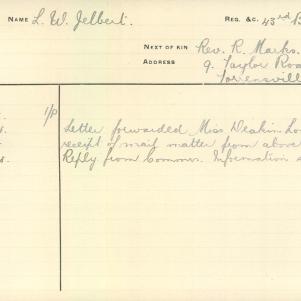 NAME L. W. Jelbert. REG. &C. 43rd B
NEXT OF KIN Rev. R. Marks.
ADDRESS 9. Taylor Roa
Torrensvill
1/P
Letter forwarded Miss Deakin Lo
s. receipt of mail matter from above
Reply from Commr. Information s
s.